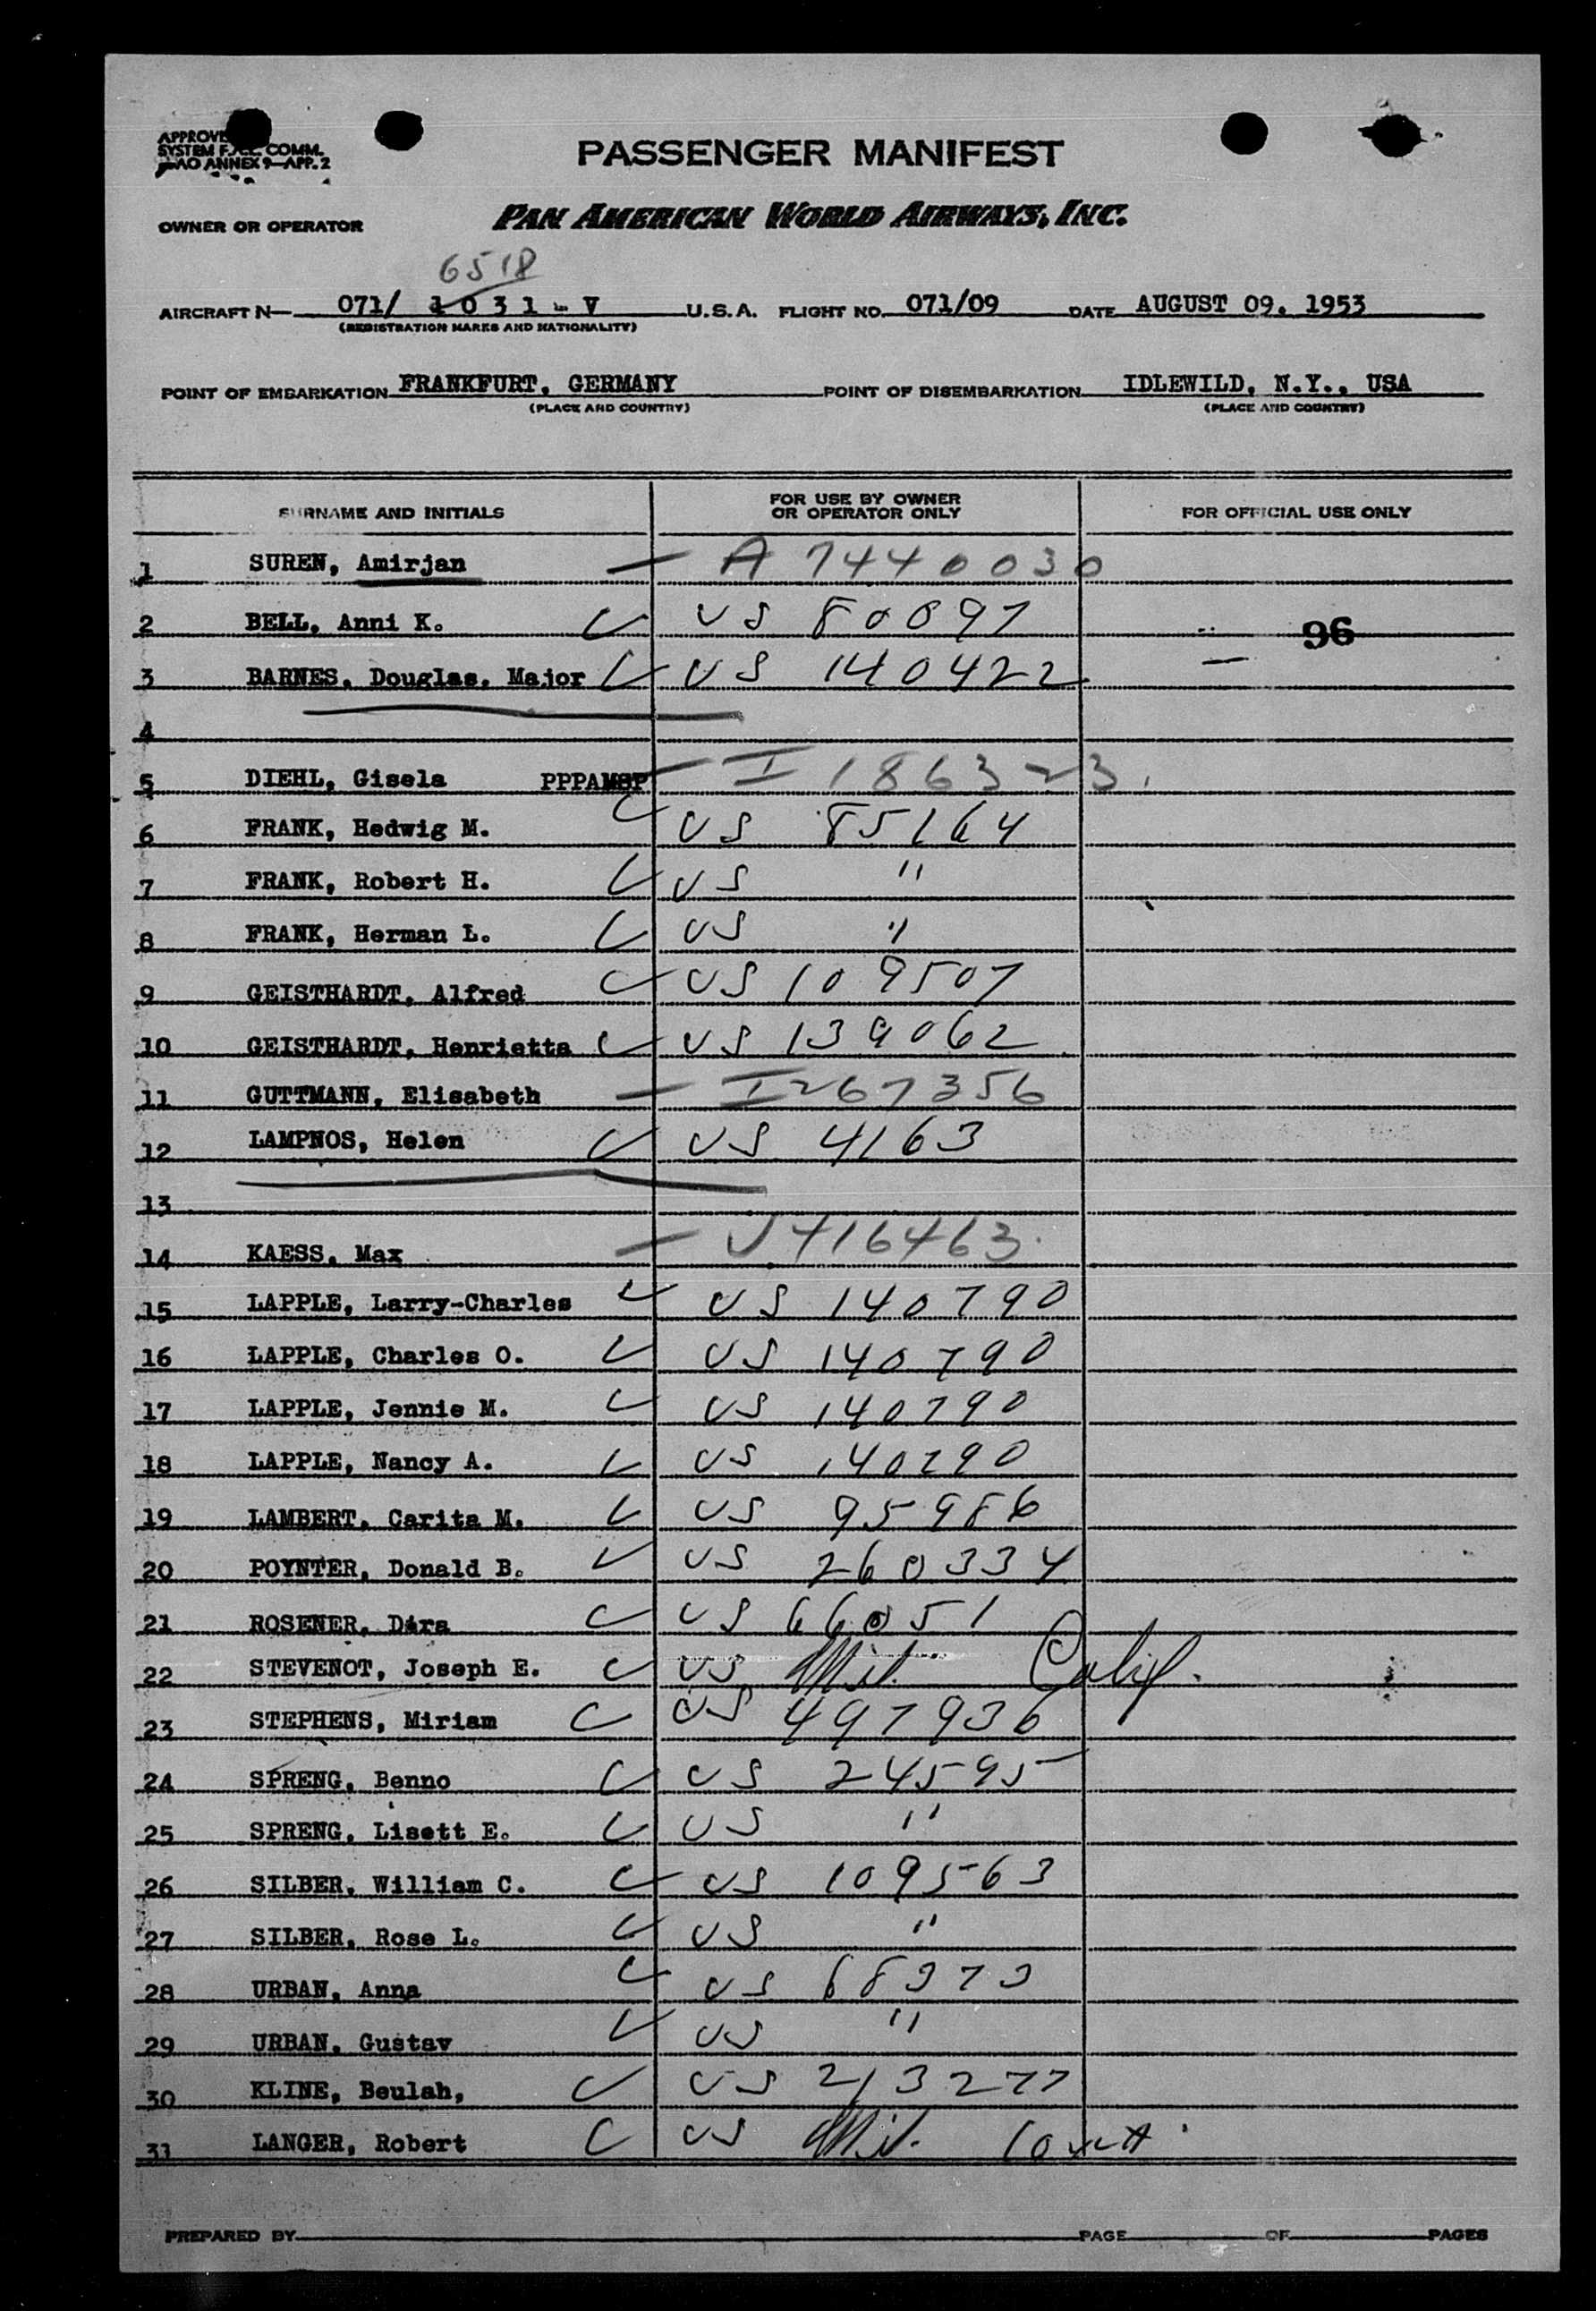 PASSENGER MANIFEST
SYSTEM COMM.
ANNEX 9—APP. 2
OWNER OR OPERATOR PAN AMERICAN WORLD AIRWAYS, INC.
6518
AIRCRAFT N— 071/ 1031-V U.S.A. FLIGHT NO. 071/09 DATE AUGUST 09. 1953
(REGISTRATION MARKS AND NATIONALITY)
POINT OF EMBARKATION FRANKFURT, GERMANY POINT OF DISEMBARKATION IDLEWILD, N.Y., USA
(PLACE AND COUNTRY) (PLACE AND COUNTRY)
SURNAME AND INITIALS FOR USE BY OWNER OR OPERATOR ONLY FOR OFFICIAL USE ONLY
1 SUREN, Amirjan — A 7440030
2 BELL, Anni K. US 80897 96
3 BARNES, Douglas, Major US 140422 —
4
5 DIEHL, Gisela PPPAMSP — I 186323
6 FRANK, Hedwig M. US 85164
7 FRANK, Robert H. US "
8 FRANK, Herman L. US "
9 GEISTHARDT, Alfred US 109507
10 GEISTHARDT, Henrietta US 139062
11 GUTTMANN, Elisabeth — I 267356
12 LAMPNOS, Helen US 4163
13
14 KAESS, Max — V 416463
15 LAPPLE, Larry-Charles US 140790
16 LAPPLE, Charles O. US 140790
17 LAPPLE, Jennie M. US 140790
18 LAPPLE, Nancy A. US 140790
19 LAMBERT, Carita M. US 95986
20 POYNTER, Donald B. US 260334
21 ROSENER, Dora US 66051
22 STEVENOT, Joseph E. US Mil. Calif.
23 STEPHENS, Miriam US 497936
24 SPRENG, Benno US 24595
25 SPRENG, Lisett E. US "
26 SILBER, William C. US 109563
27 SILBER, Rose L. US "
28 URBAN, Anna US 68373
29 URBAN, Gustav US "
30 KLINE, Beulah, US 213277
31 LANGER, Robert US Mil.
PREPARED BY PAGE OF PAGES